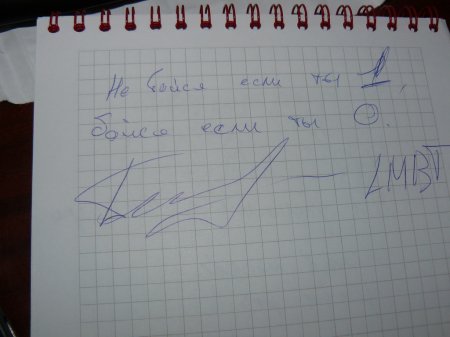 Не бойся если ты 1,
бойся если ты 0.
LMBT